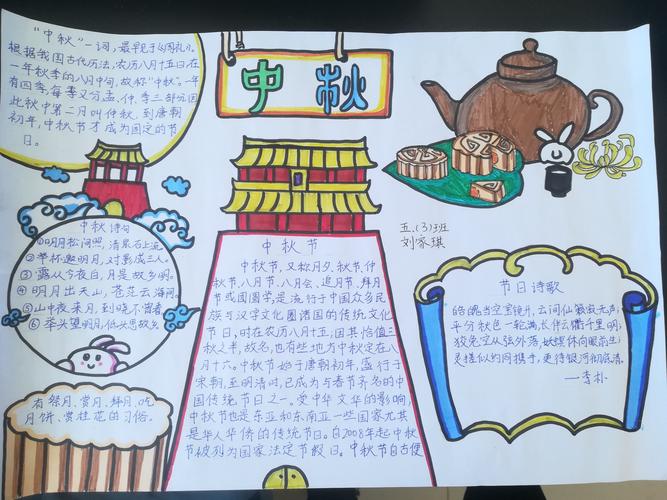 "中秋"一词,最早见于《周礼》。
根据我国古代历法,农历八月十五日在
一年秋季的八月中旬,故称"中秋"。一年
有四季,每季又分孟、仲、季三部
此秋中第二月叫仲秋,到唐朝
初年,中秋节才成为固定的节
日。
中秋
中秋诗句
①明月松间照,清泉石上流
②举杯邀明月,对影成三人。
③露从今夜白,月是故乡明。
④明月出天山,苍茫云海间。
⑤山中夜来月,到晓不曾看
⑥举头望明月,低头思故乡
有祭月、赏月、拜月、吃
月饼、赏桂花的习俗。
中秋节
中秋节,又称月夕、秋节、仲
秋节、八月节、八月会、追月节、拜月
节或团圆节,是流行于中国众多民
族与汉字文化圈诸国的传统文化
节日,时在农历八月十五;因其恰值三
秋之半,故名,也有些地方中秋定在八
月十六。中秋节始于唐朝初年,盛行于
宋朝,至明清时,已成为与春节齐名的中
国传统节日之一。受中华文华的影响,
中秋节也是东亚和东南亚一些国家尤其
是华人华侨的传统节日。自2008年起中秋
节被列为国家法定节假日。中秋节自古便
五.(3)班
刘家琪
节日诗歌
皓魄当空宝镜升,云间仙籁寂无声;
平分秋色一轮满,长伴云衢千里明;
狡兔空从弦外落,妖蟆休向眼前生;
灵槎似约同携手,更待银河彻底清。
—李朴